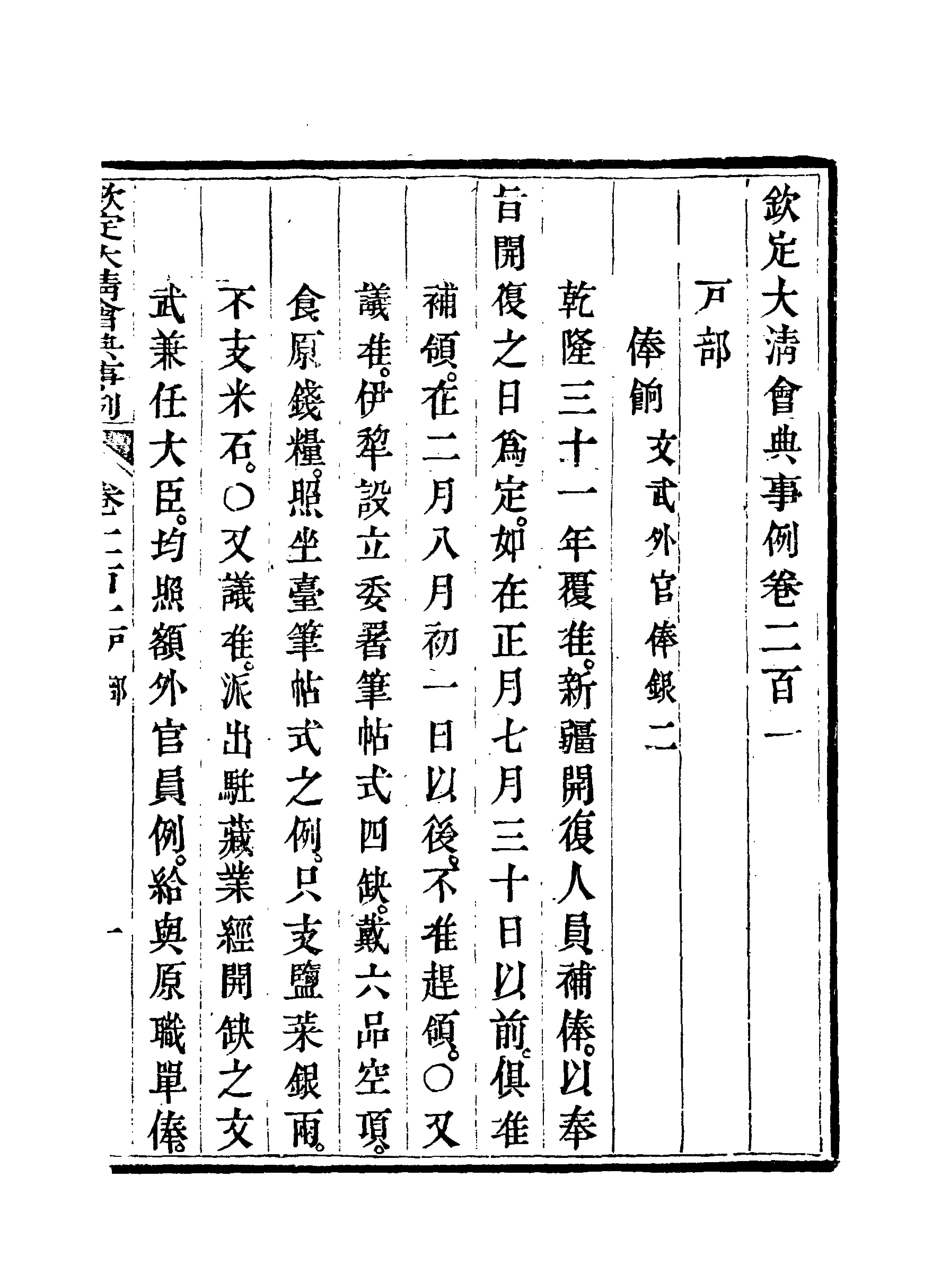 欽定大淸會典事例卷二百一
戸部
俸餉文武外官俸銀二
乾隆三十一年覆准。新疆開復人員補俸。以奉
旨開復之日爲定。如在正月七月三十日以前。俱准
補領。在二月八月初一日以後。不准趕領。○又
議准。伊犂設立委署筆帖式四缺。戴六品空項。
食原錢糧。照坐臺筆帖式之例。只支鹽菜銀兩。
不支米石。○又議准。派出駐藏業經開缺之文
武兼任大臣。均照額外官員例。給與原職單俸。
欽定大淸會典事例 卷二百一戸部 一